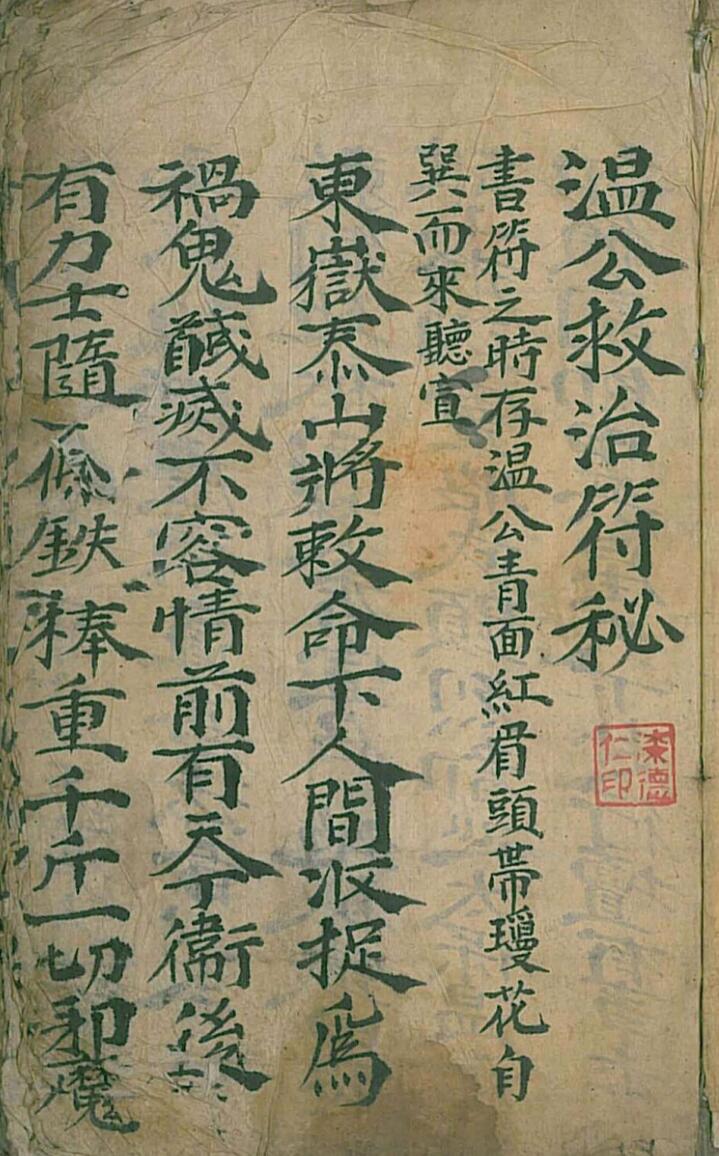 温公救治符秘
書符之時存温公青面紅眉頭帶瓊花自
巽而來聽宣
東嶽泰山將敕命下人間收捉為
禍鬼馘滅不容情前有天丁衞後
有力士隨一條鉄棒重千斤一切邪魔
德仁印